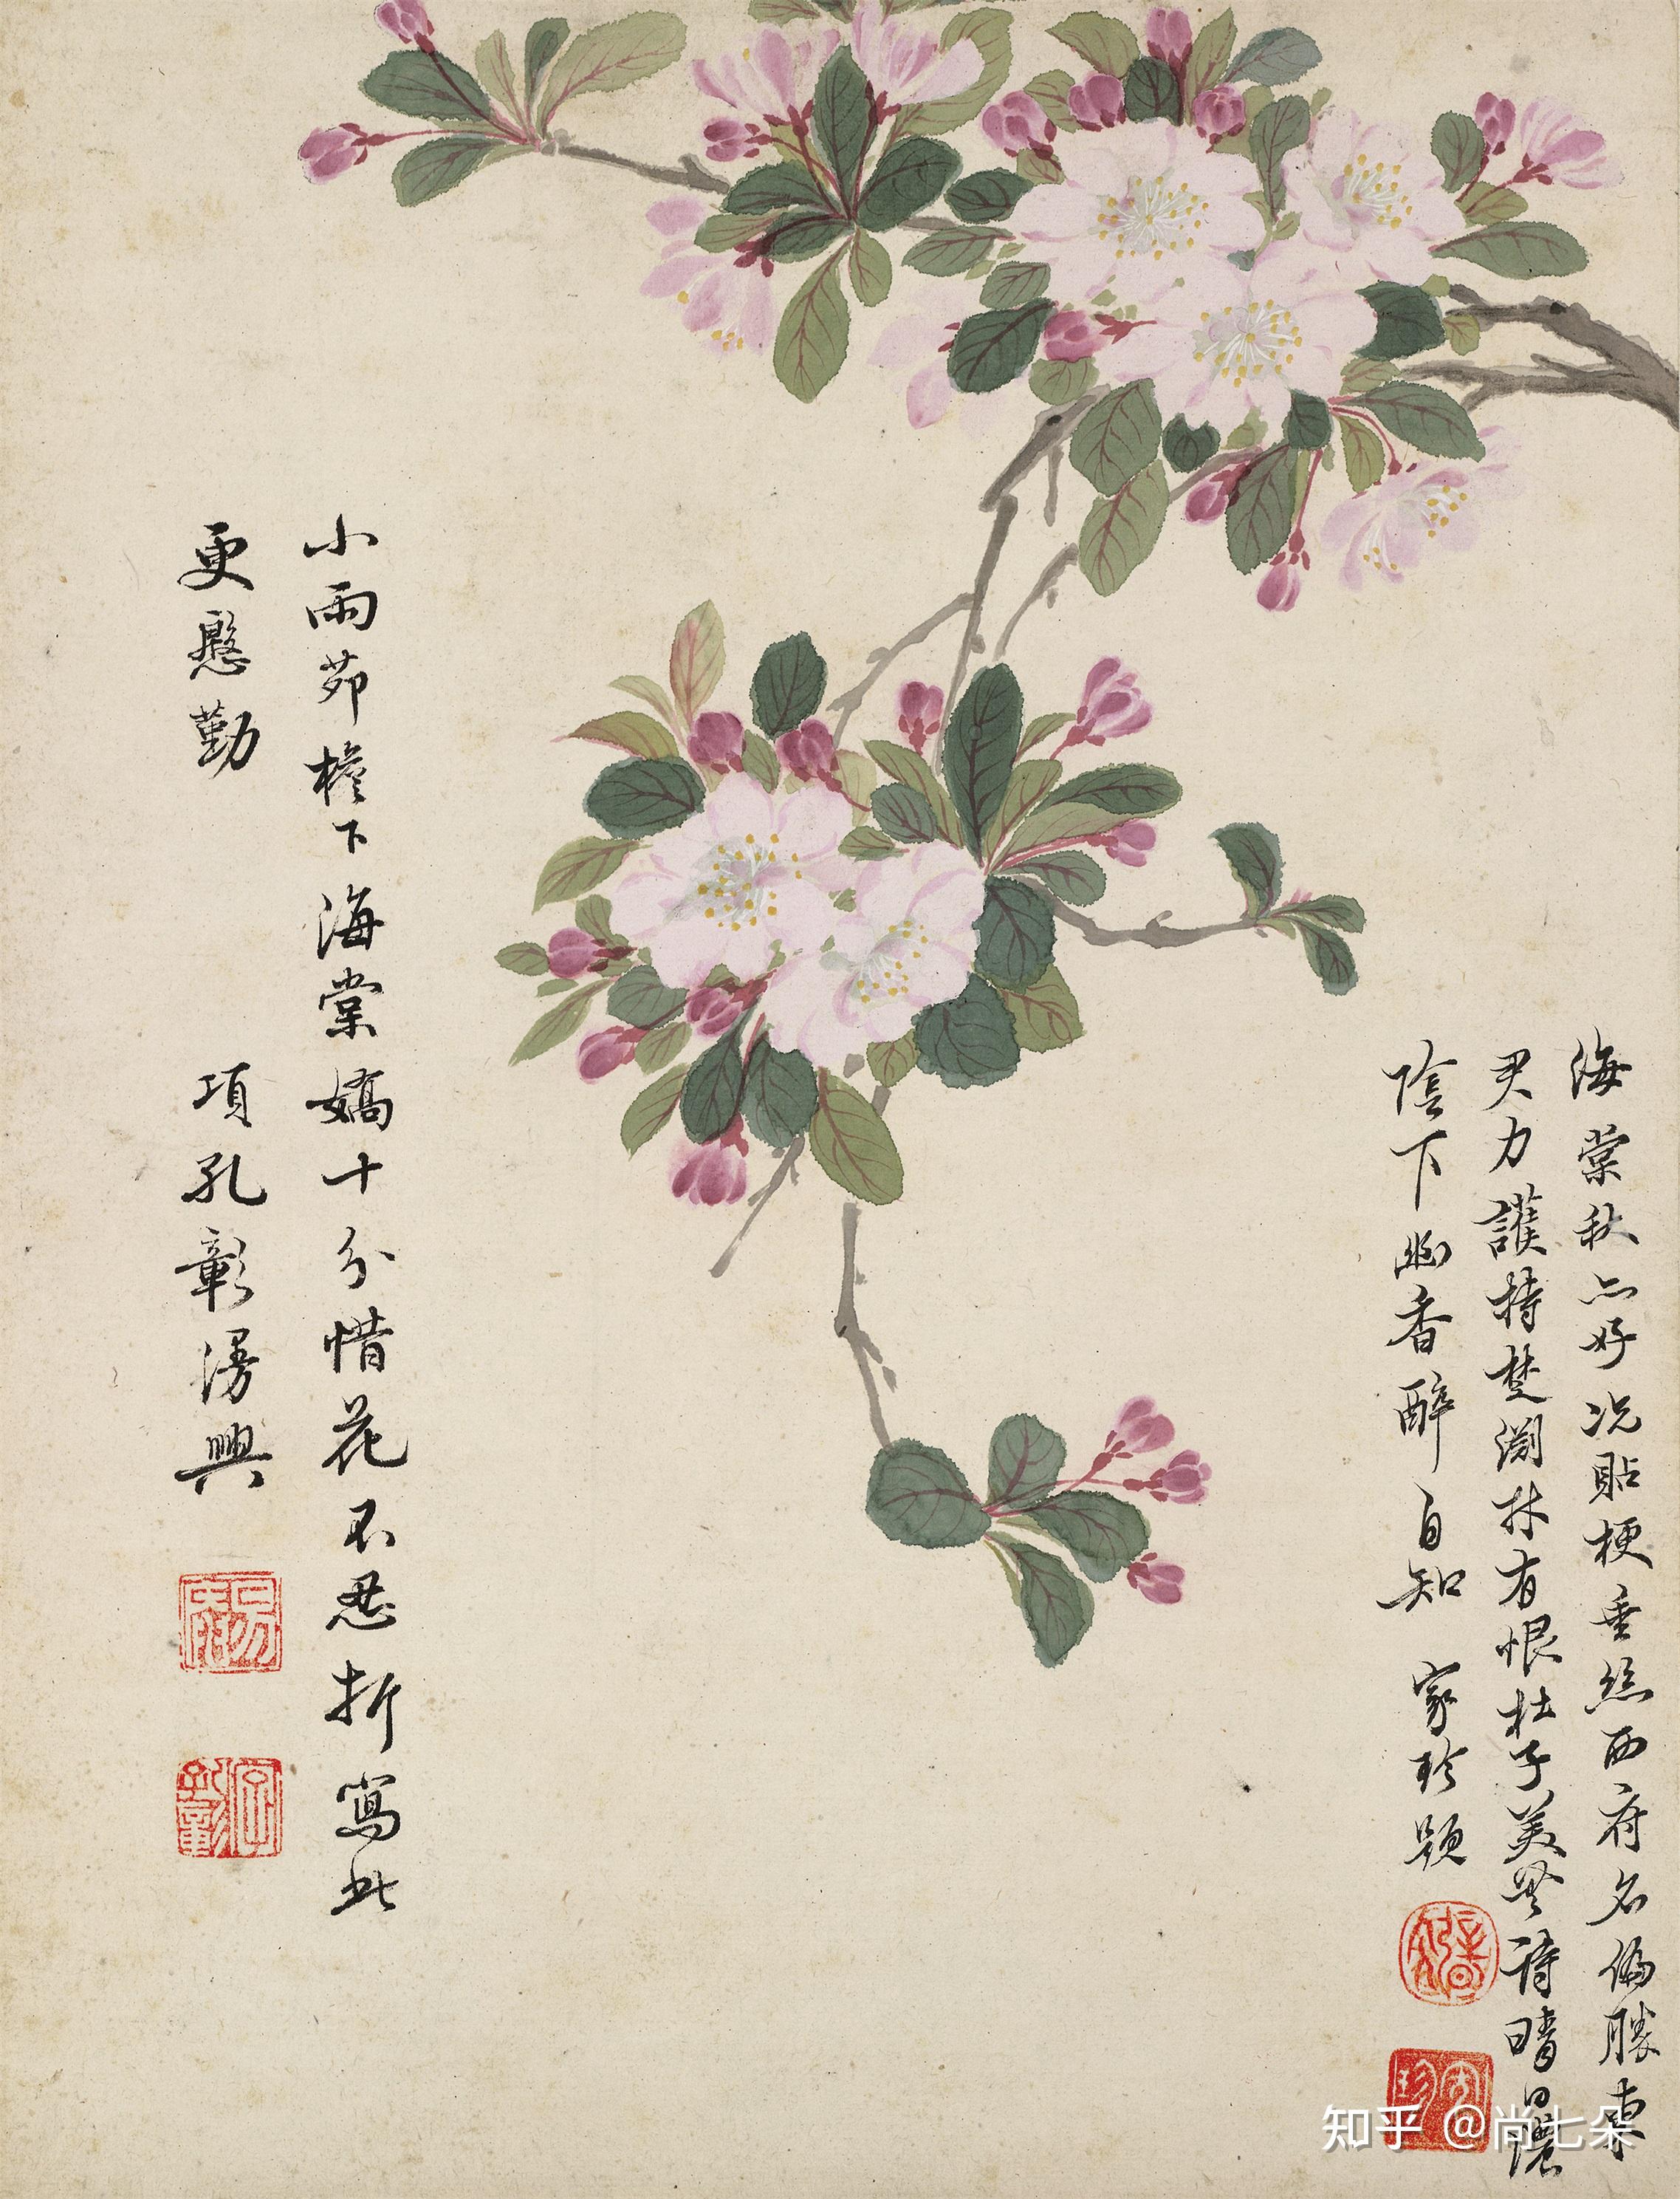 海棠秋亦好况貼梗垂絲西府名偏勝東
君力護持楚淵林有恨杜子美無詩晴日濃
陰下幽香醉自知 家珍題
小雨茆檐下海棠嬌十分惜花不忍折寫此
更慇勤 項孔彰漫興
知乎 @尚七朵